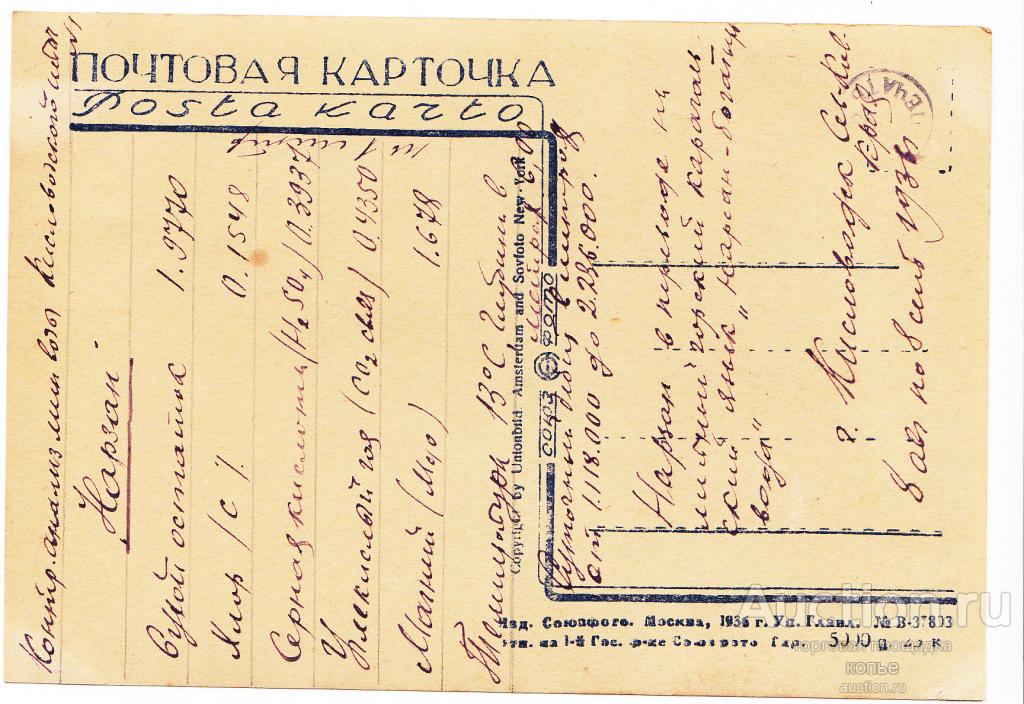 ПОЧТОВАЯ КАРТОЧКА
Poŝta karto
Контр. анализ мин воды Кисловодского
Нарзан
на 1 литр
Сухой остаток 1.9770
Хлор (Cl) 0.1548
Серная кислота (H2SO4) 0.3937
Углекислый газ (CO2 связ) 0.4350
Магний (MgO) 1.678
Температура 13°C Глубина в
Суточный дебит литров
от 1.118.000 до 2.236.000.
Copyright by Unionbild. Amsterdam and Sovfoto New-York
СОЮЗ ФОТО
Нарзан в переводе на
местный горский карачаев-
ский язык "Нарсан-богатырь
вода"
г. Кисловодск Сев-Кав.
край
8 авг по сент 1936
Изд. Союзфото. Москва, 1936 г. Уп. Главл. № В-37803
Отп. на 1-й Гос. ф-ке Союзфото Тир. 5000
ПЕЧАТО
Auction.ru
торговая площадка
копье
auction.ru